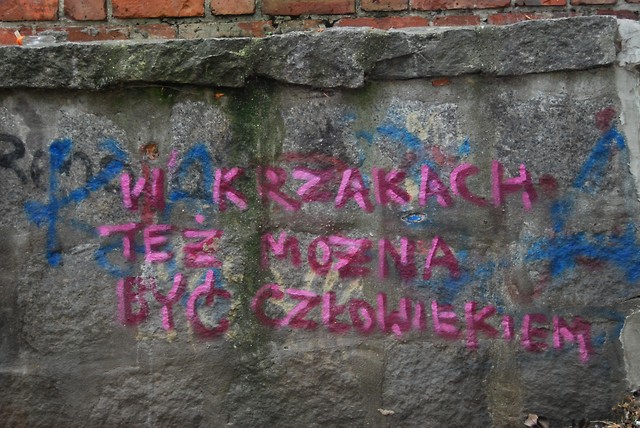 W KRZAKACH
TEŻ MOZNA
BYĆ CZŁOWIEKIEM